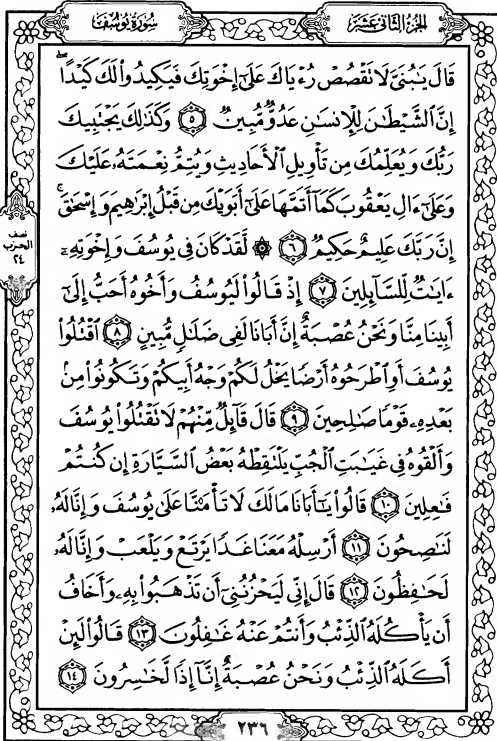 الجزء الثاني عشر
سورة يوسف
قَالَ يَٰبُنَيَّ لَا تَقْصُصْ رُءْيَاكَ عَلَىٰٓ إِخْوَتِكَ فَيَكِيدُوا۟ لَكَ كَيْدًا ۖ
إِنَّ ٱلشَّيْطَٰنَ لِلْإِنسَٰنِ عَدُوٌّ مُّبِينٌ ٥ وَكَذَٰلِكَ يَجْتَبِيكَ
رَبُّكَ وَيُعَلِّمُكَ مِن تَأْوِيلِ ٱلْأَحَادِيثِ وَيُتِمُّ نِعْمَتَهُۥ عَلَيْكَ
وَعَلَىٰٓ ءَالِ يَعْقُوبَ كَمَآ أَتَمَّهَا عَلَىٰٓ أَبَوَيْكَ مِن قَبْلُ إِبْرَٰهِيمَ وَإِسْحَٰقَ ۚ
إِنَّ رَبَّكَ عَلِيمٌ حَكِيمٌ ٦ ۞ لَّقَدْ كَانَ فِى يُوسُفَ وَإِخْوَتِهِۦٓ
ءَايَٰتٌ لِّلسَّآئِلِينَ ٧ إِذْ قَالُوا۟ لَيُوسُفُ وَأَخُوهُ أَحَبُّ إِلَىٰٓ
أَبِينَا مِنَّا وَنَحْنُ عُصْبَةٌ إِنَّ أَبَانَا لَفِى ضَلَٰلٍ مُّبِينٍ ٨ ٱقْتُلُوا۟
يُوسُفَ أَوِ ٱطْرَحُوهُ أَرْضًا يَخْلُ لَكُمْ وَجْهُ أَبِيكُمْ وَتَكُونُوا۟ مِنۢ
بَعْدِهِۦ قَوْمًا صَٰلِحِينَ ٩ قَالَ قَآئِلٌ مِّنْهُمْ لَا تَقْتُلُوا۟ يُوسُفَ
وَأَلْقُوهُ فِى غَيَٰبَتِ ٱلْجُبِّ يَلْتَقِطْهُ بَعْضُ ٱلسَّيَّارَةِ إِن كُنتُمْ
فَٰعِلِينَ ١٠ قَالُوا۟ يَٰٓأَبَانَا مَالَكَ لَا تَأْمَ۫نَّا عَلَىٰ يُوسُفَ وَإِنَّا لَهُۥ
لَنَٰصِحُونَ ١١ أَرْسِلْهُ مَعَنَا غَدًا يَرْتَعْ وَيَلْعَبْ وَإِنَّا لَهُۥ
لَحَٰفِظُونَ ١٢ قَالَ إِنِّى لَيَحْزُنُنِىٓ أَن تَذْهَبُوا۟ بِهِۦ وَأَخَافُ
أَن يَأْكُلَهُ ٱلذِّئْبُ وَأَنتُمْ عَنْهُ غَٰفِلُونَ ١٣ قَالُوا۟ لَئِنْ
أَكَلَهُ ٱلذِّئْبُ وَنَحْنُ عُصْبَةٌ إِنَّآ إِذًا لَّخَٰسِرُونَ ١٤
نصف
الحزب
٢٤
٢٣٦